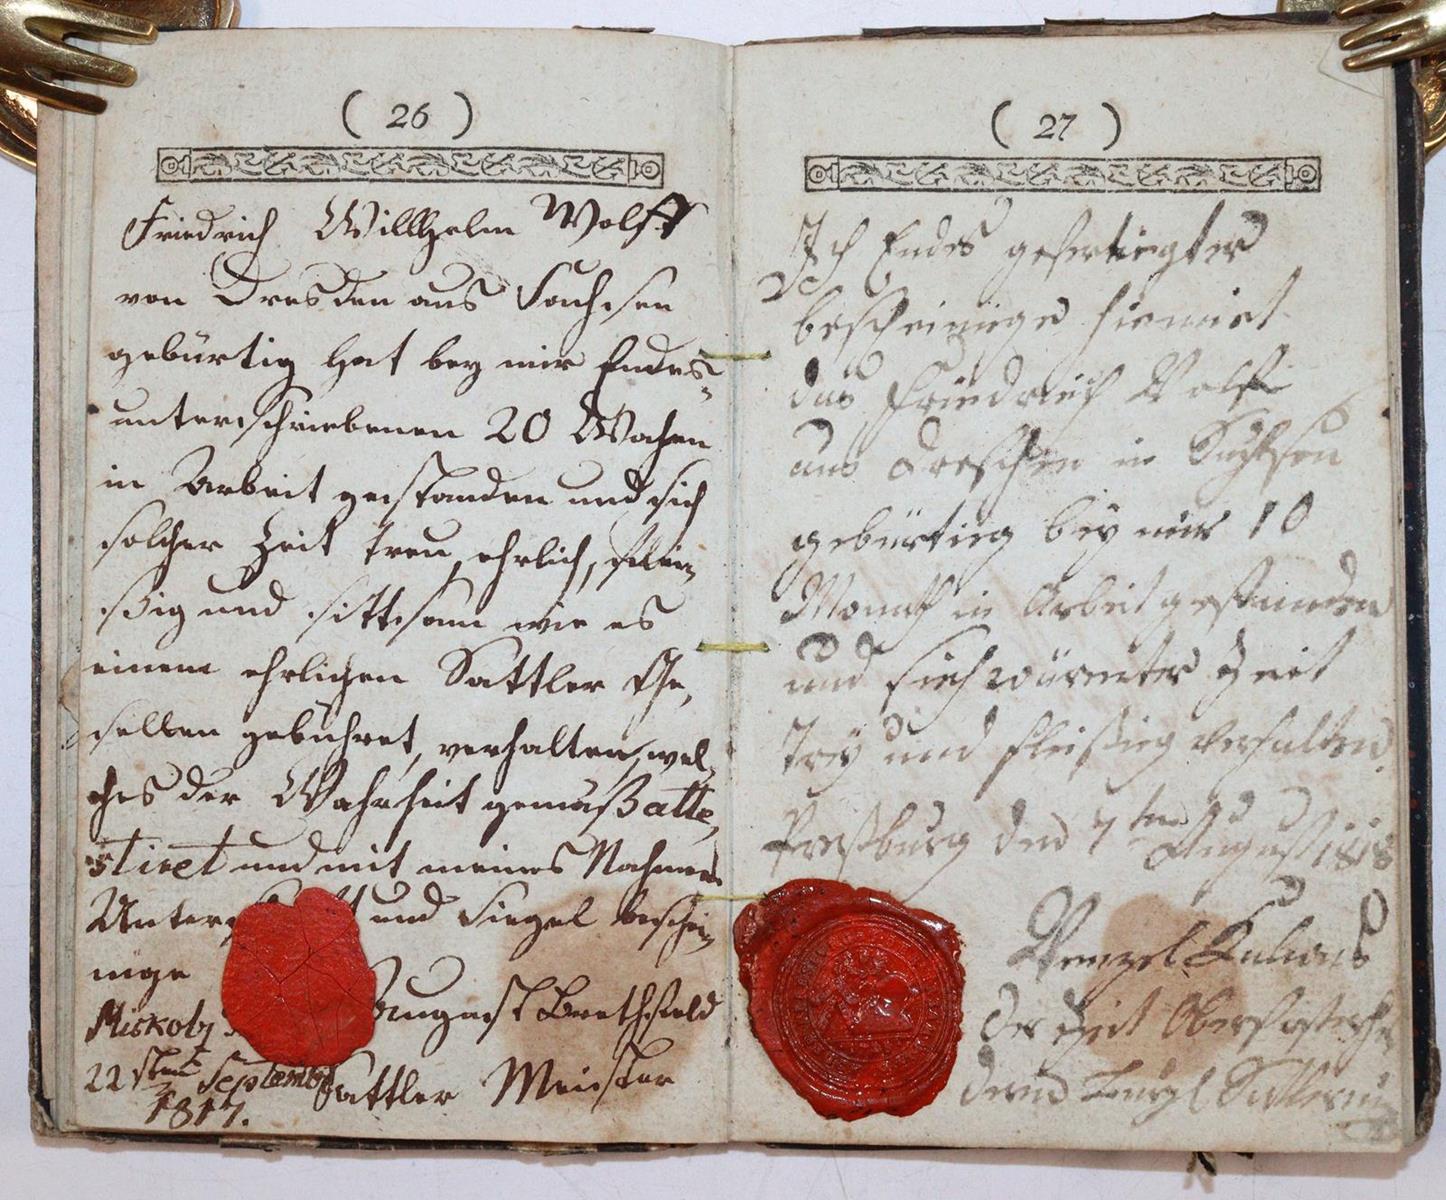 ( 26 )
Friedrich Willhelm Wolff
von Dresden aus Sachsen
gebürtig hat bey mir Endes-
unterschriebenen 20 Wochen
in Arbeit gestanden und sich
solcher Zeit treu, ehrlich, fleis-
sig und sittsam wie es
einem ehrlichen Sattler Ge,
sellen gebühret, verhalten, wel,
ches der Wahrheit gemäß atte,
stiret und mit meines Nahmens
und Siegel beschei-
nige
Miskolz
22 September
1817.
August Brethfeld
Sattler Meister
( 27 )
Ich Endes gefertiegter
bescheiniege hiemiet
das Friedrich Wolf
aus Dresden in Sachsen
gebürtieg bey mir 10
Monath in Arbeit gestanden
und sich Zeit
treÿ und fleisieg verhalten
Presburg den 7ten August 1818
Wenzel
der Zeit